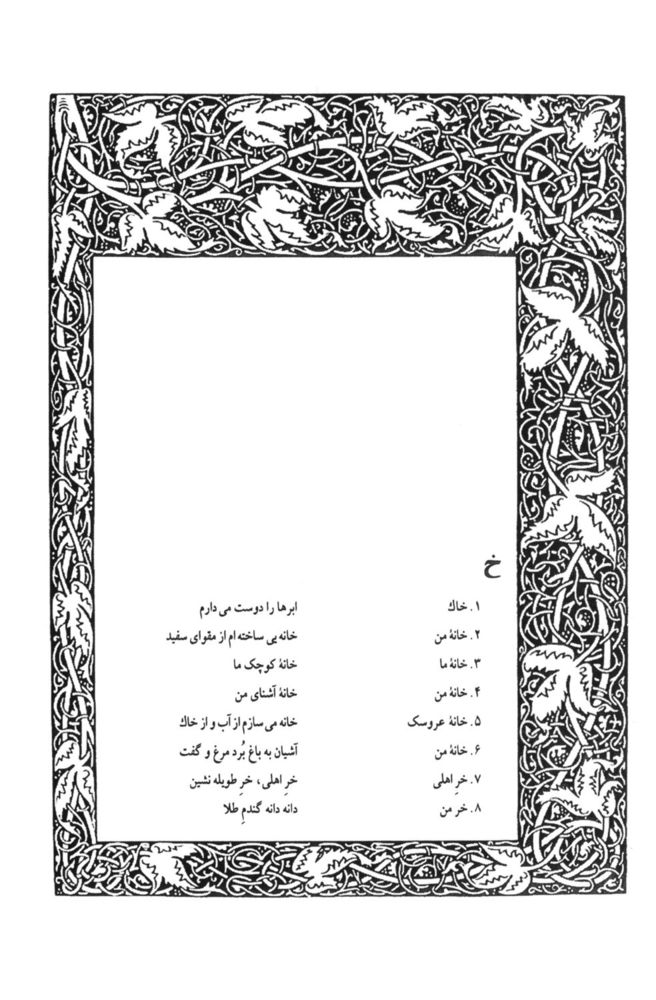 خ
۱. خاک ابرها را دوست می دارم
۲. خانهٔ من خانه یی ساخته ام از مقوای سفید
۳. خانهٔ ما خانهٔ کوچک ما
۴. خانهٔ من خانهٔ آشنای من
۵. خانهٔ عروسک خانه می سازم از آب و از خاک
۶. خانهٔ من آشیان به باغ بُرد مرغ و گفت
۷. خرِ اهلی خرِ اهلی، خرِ طویله نشین
۸. خر من دانه دانه گندمِ طلا